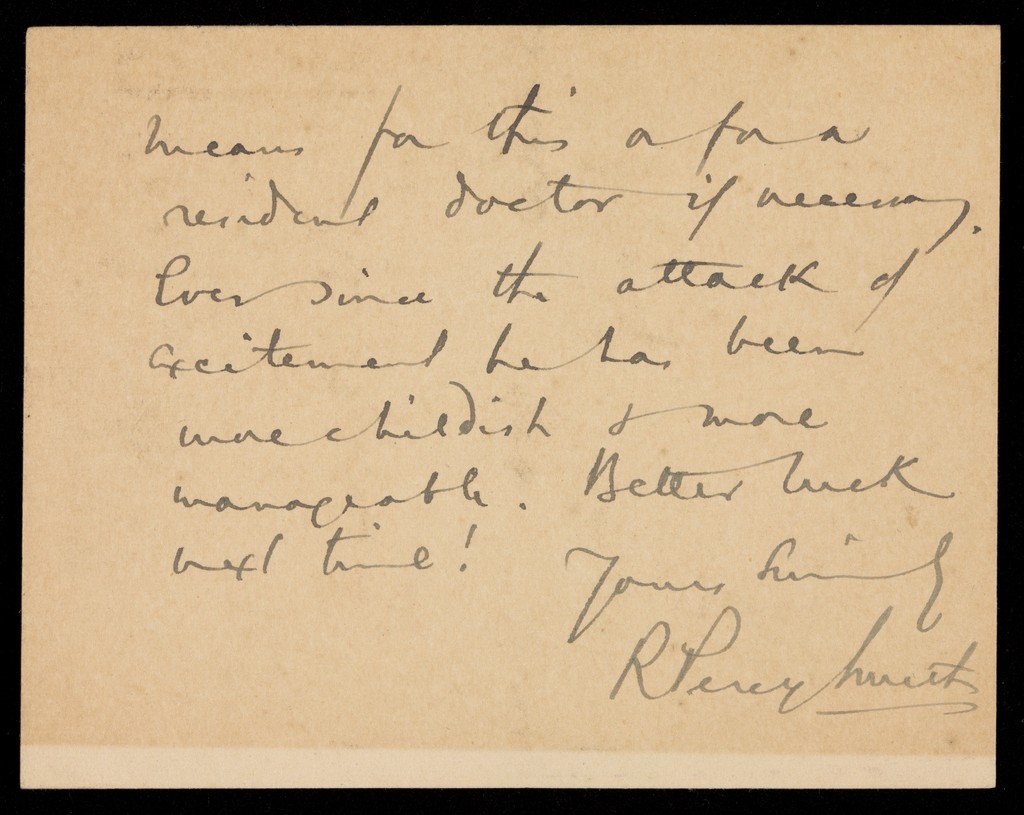 means for this or for a
resident doctor if necessary.
Ever since the attack of
excitement he has been
more childish & more
manageable. Better luck
next time!
Yours Sincerely
R Percy Smith